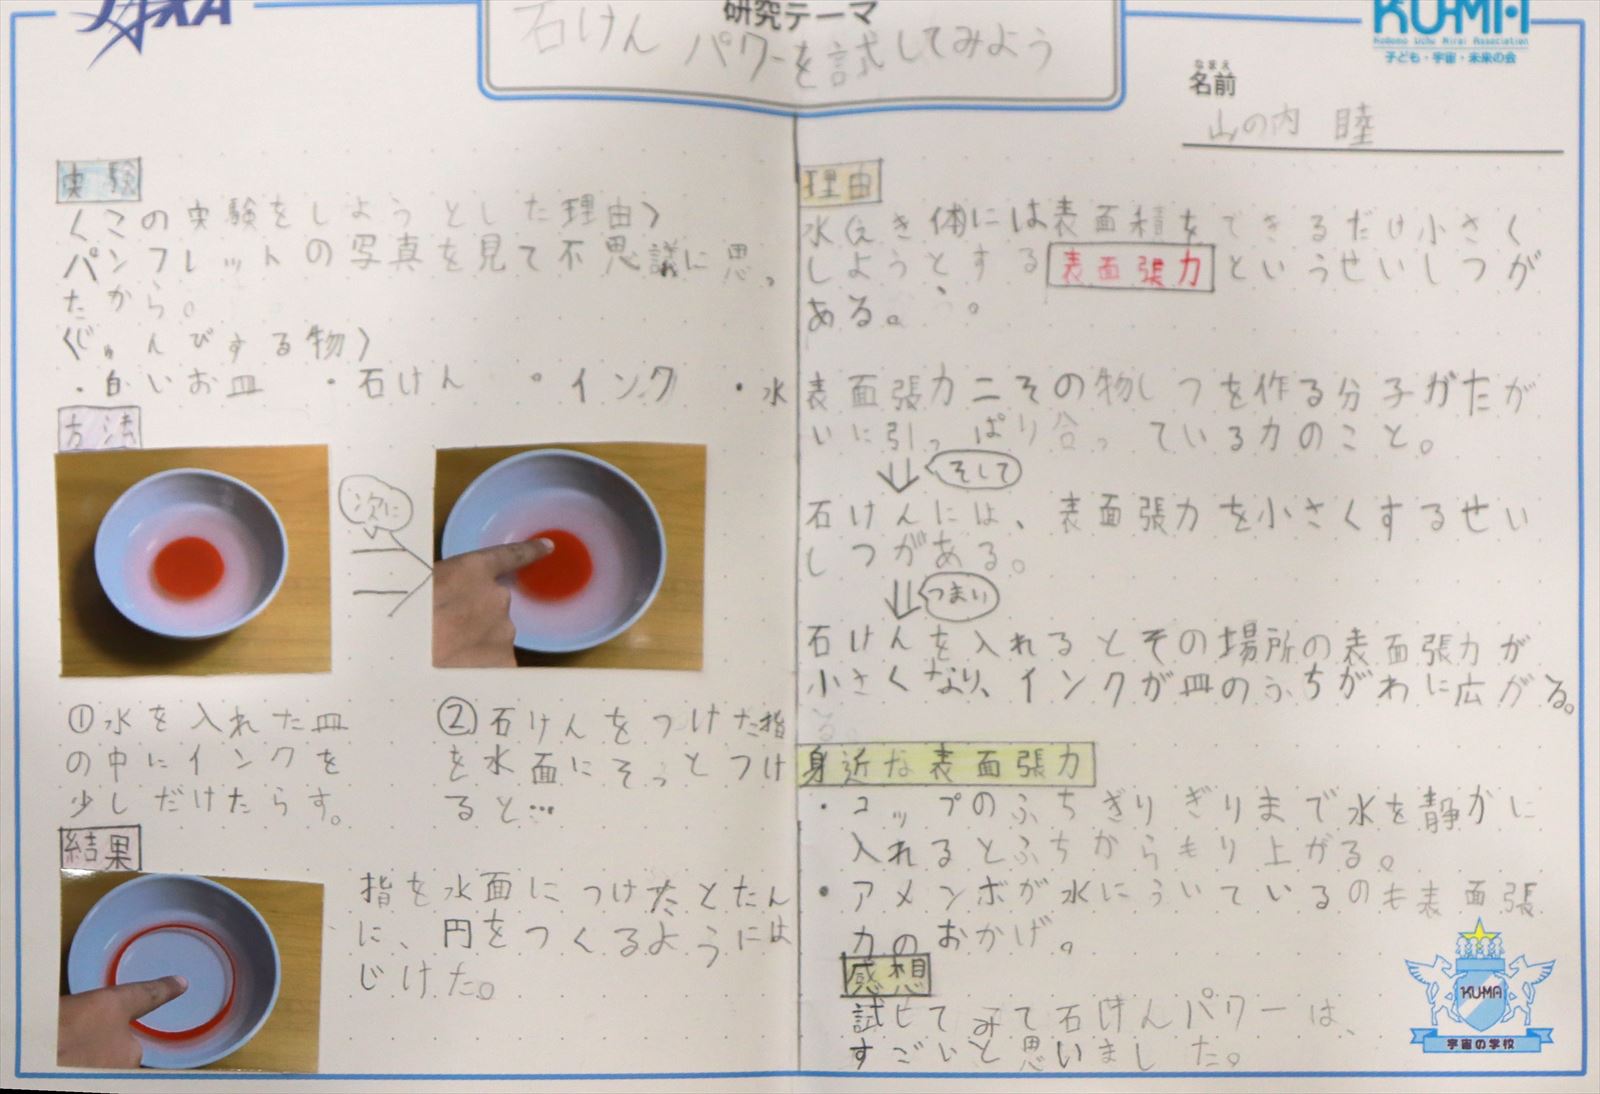 JAXA
研究テーマ
石けんパワーを試してみよう
KU-MA
Kodomo Uchu Mirai Association
子ども・宇宙・未来の会
なまえ
名前
山の内 睦
実験
〈この実験をしようとした理由〉
パンフレットの写真を見て不思議に思っ
たから。
〈じゅんびする物〉
・白いお皿 ・石けん ・インク ・水
方法
次に
①水を入れた皿
の中にインクを
少しだけたらす。
②石けんをつけた指
を水面にそっとつけ
ると…
結果
指を水面につけたとたん
に、円をつくるようには
じけた。
理由
水(えき体)には表面積をできるだけ小さく
しようとする表面張力というせいしつが
ある。
表面張力=その物しつを作る分子がたが
いに引っぱり合っている力のこと。
そして
石けんには、表面張力を小さくするせい
しつがある。
つまり
石けんを入れるとその場所の表面張力が
小さくなり、インクが皿のふちがわに広がる。
身近な表面張力
・コップのふちぎりぎりまで水を静かに
入れるとふちからもり上がる。
・アメンボが水にういているのも表面張
力のおかげ。
感想
試してみて石けんパワーは、
すごいと思いました。
KU-MA
宇宙の学校